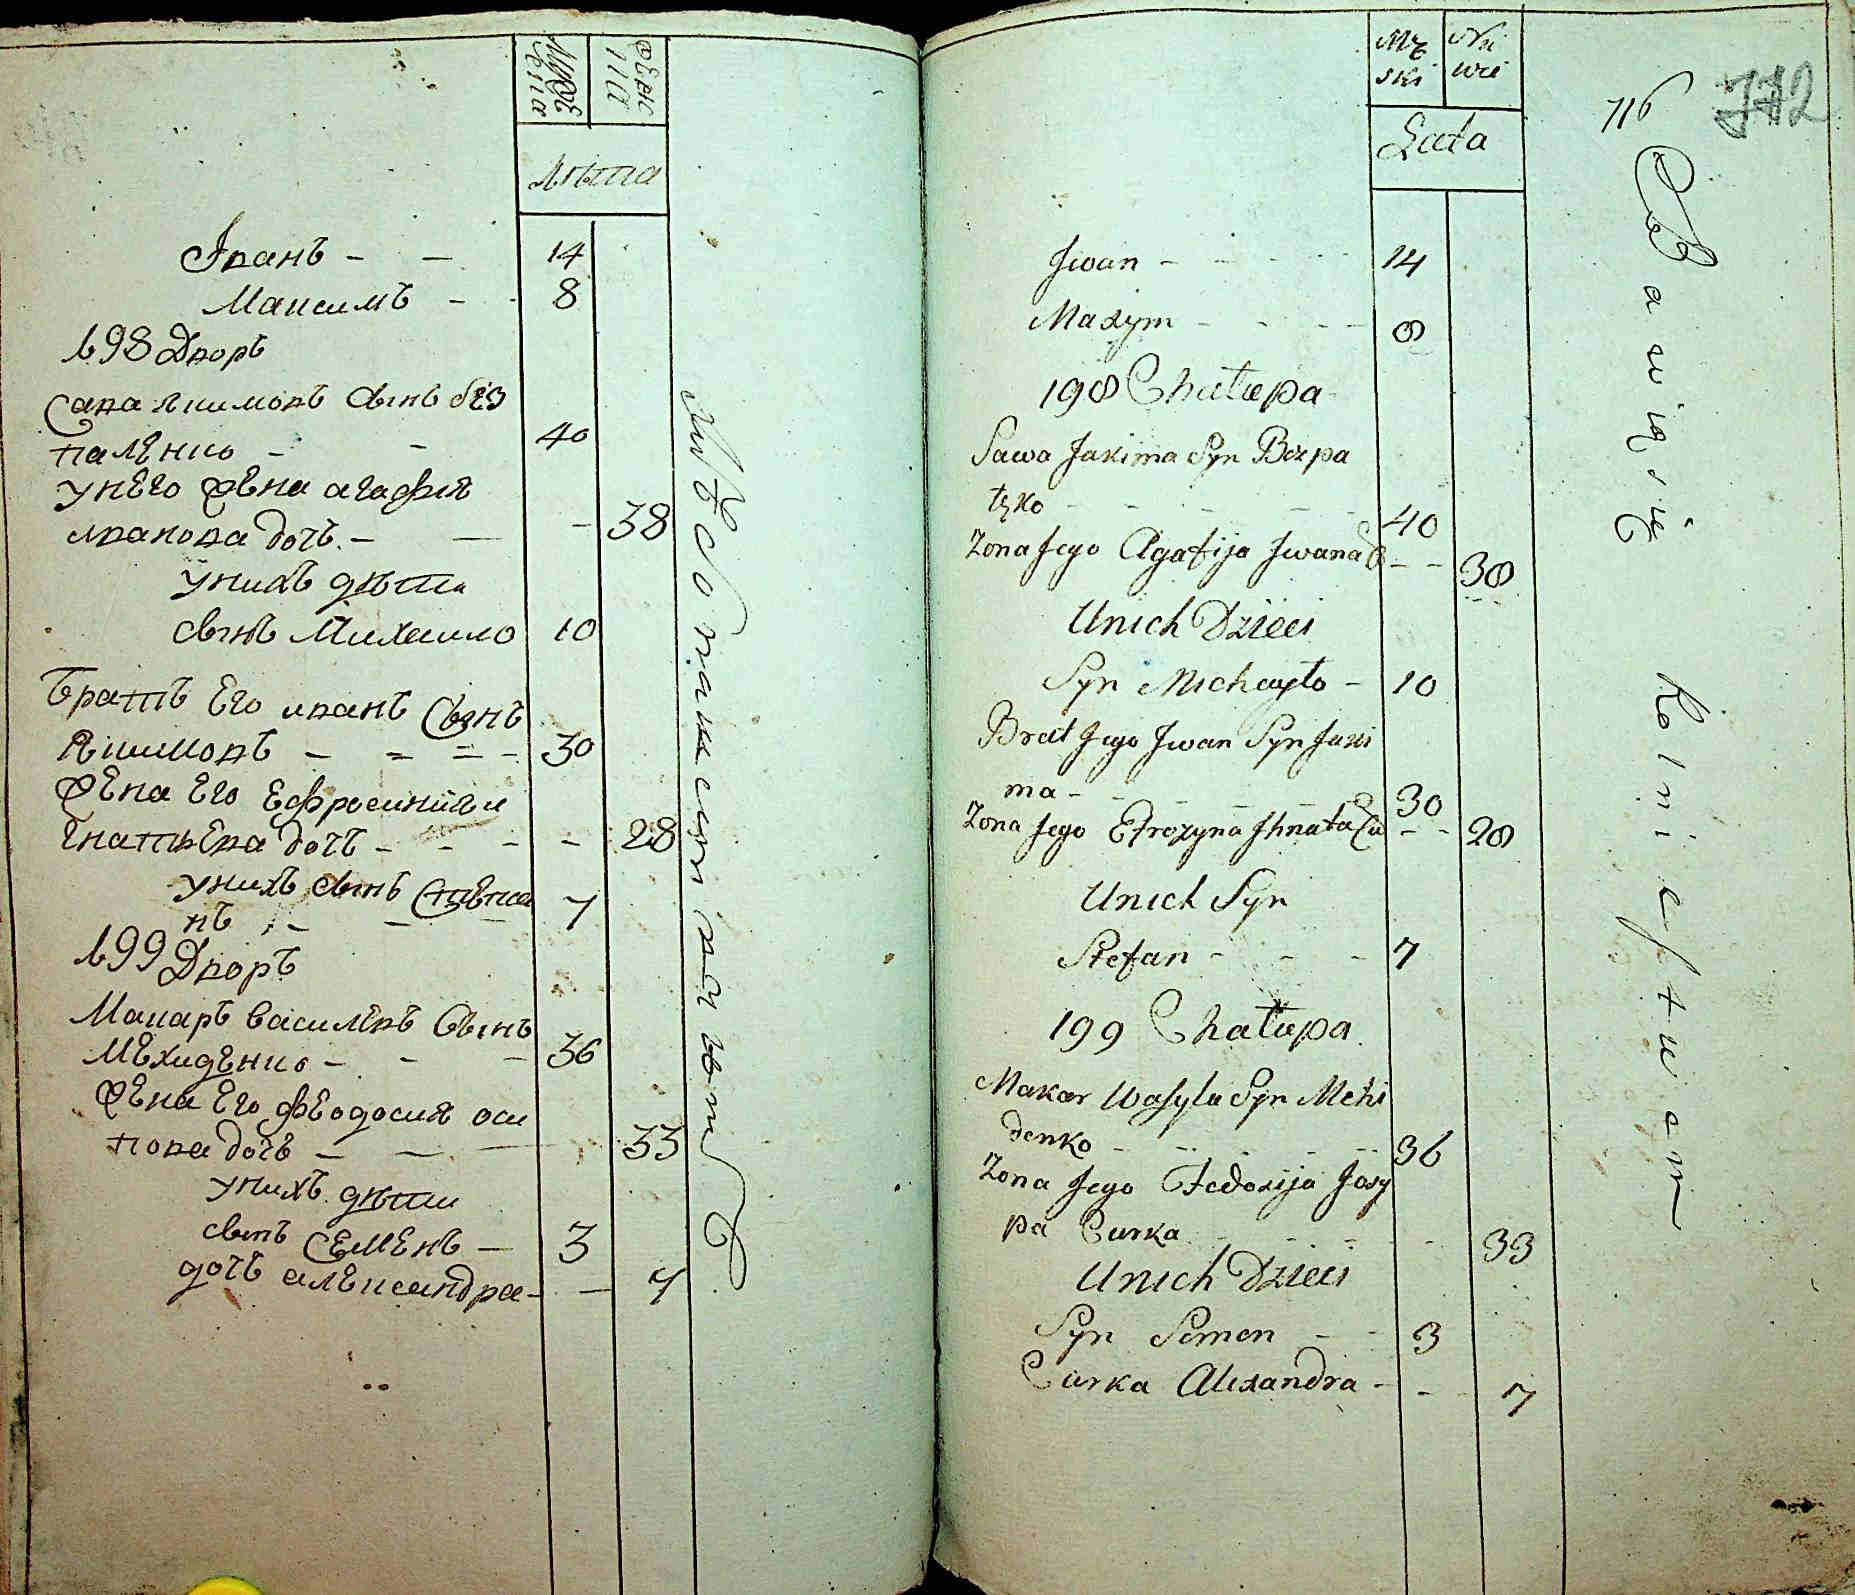 Мужеска
женска
лѣта
Іванъ - - 14
Максимъ - - 8
198 Дворъ
Сава Якимовъ сынъ без
паленко - - 40
у него жена агафия
иванова дочь - - 38
у нихъ дѣти
сынъ Михаило 10
Братъ его иванъ сынъ
Якимовъ - - - 30
жена его ефросиния и
гнатьева дочь - - - - 28
у нихъ сынъ Степа
нъ - - - 7
199 Дворъ
Макаръ василевъ сынъ
Мехиденко - - - 36
жена его феодосия оси
пова дочь - - - 33
у нихъ дѣти
сынъ Семенъ - 3
дочь александра - - 7
Mę
ski
Lata
716
772
Jwan - - - - 14
Maxym - - - - 8
198 Chałupa
Sawa Jakima Syn Bezpa
łęko - - - - - 40
Zona Jego Agafija Jwana C - - 38
Unich Dzieci
Syn Michayło - 10
Brat Jego Jwan Syn Jaki
ma - - - - - 30
Zona Jego Efrozyna Jhnata Cu - - 28
Unich Syn
Stefan - - - 7
199 Chałupa
Makar Wasyla Syn Mehi
denko - - - - - 36
Zona Jego Fedozija Josy
pa Curka - - - - - 33
Unich Dzieci
Syn Semen - - 3
Curka Alexandra - - - 7